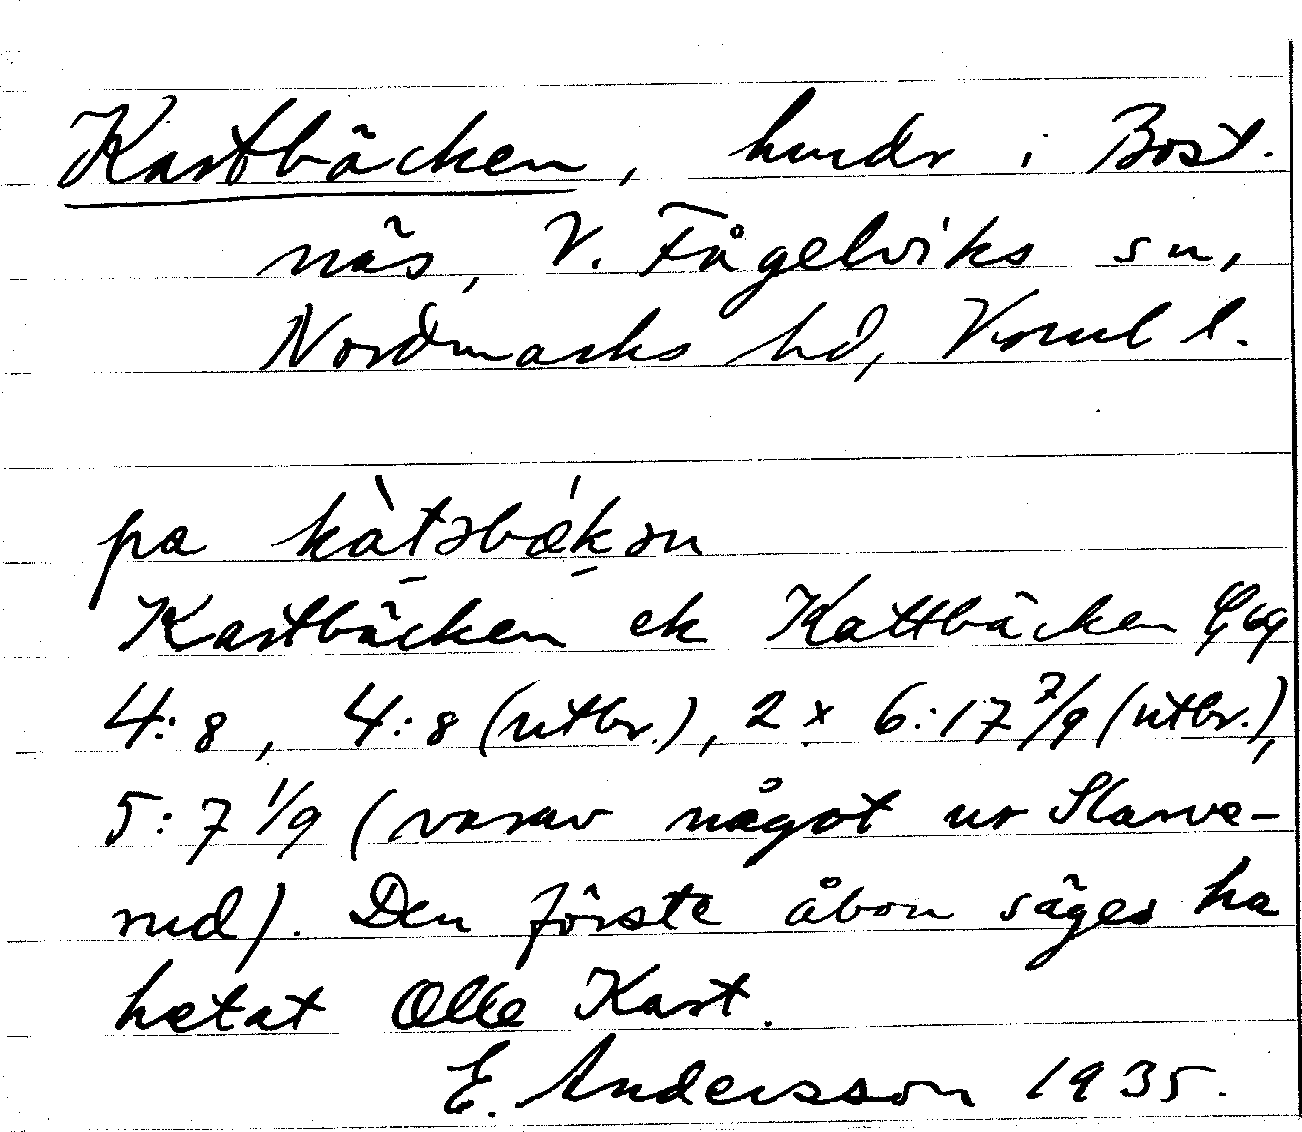 Kastbäcken, hmdr i Bost.
näs, V. Fågelviks sn,
Nordmarks hd, Vrml l.
pa kàtsbǽkən
Kastbäcken ek Kattbäcken
4:8, 4:8 (utbr.), 2 x 6:17 7/9 (utbr.),
5:7 1/9 (varav något ur Slarve-
rud). Den förste åbon säges ha
hetat Olle Kast.
E. Andersson 1935.